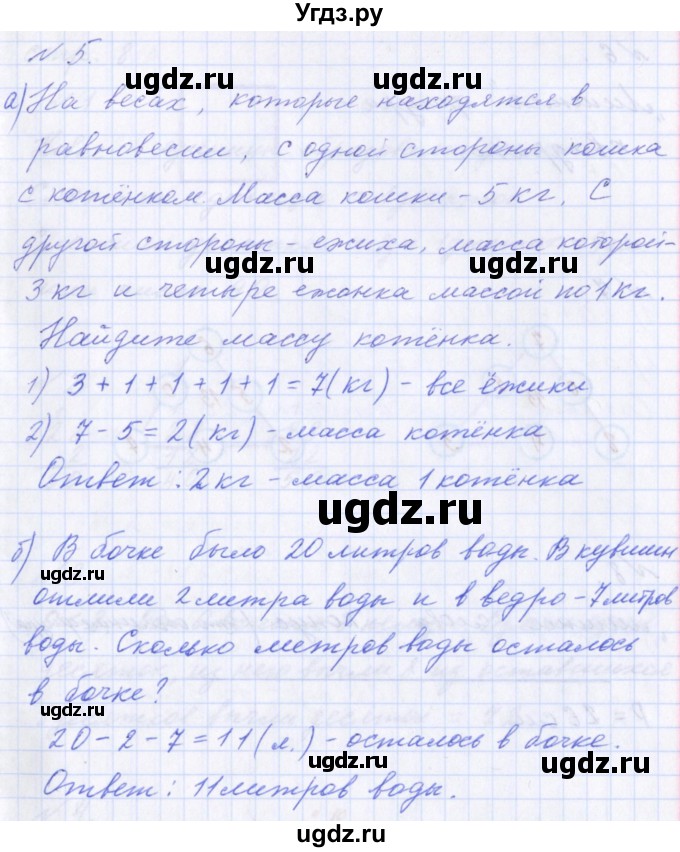 Угдз.ру
№ 5.
ugdz.ru
а) На весах, которые находятся в
равновесии, с одной стороны кошка
ugdz.ru
с котёнком. Масса кошки - 5 кг. С
другой стороны - ежиха, масса которой-
ugdz.ru ugdz.ru
3 кг и четыре ежонка массой по 1 кг.
Найдите массу котёнка.
ugdz.ru
1) 3 + 1 + 1 + 1 + 1 = 7 (кг) - все ёжики
2) 7 - 5 = 2 (кг) - масса котёнка
ugdz.ru
Ответ: 2 кг - масса 1 котёнка
ugdz.ru
б) В бочке было 20 литров воды. В кувшин
ugdz.ru ugdz.ru
отлили 2 литра воды и в ведро - 7 литров
воды. Сколько литров воды осталось
ugdz.ru
в бочке?
ugdz.ru
20 - 2 - 7 = 11 (л.) - осталось в бочке.
ugdz.ru
Ответ: 11 литров воды.
ugdz.ru